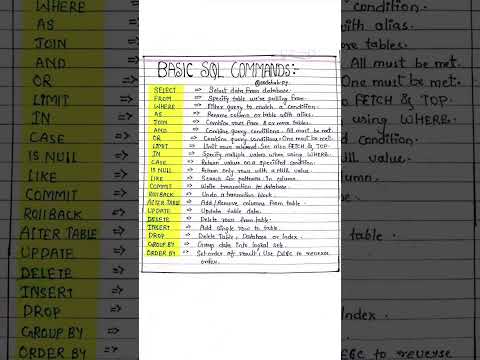 BASIC SQL COMMANDS:-
@codehub.py
SELECT => Select data from database.
FROM => Specify table we're pulling from.
WHERE => Filter query to match a condition.
AS => Rename column or table with alias.
JOIN => Combine rows from 2 or more tables.
AND => Combine query conditions. All must be met.
OR => Combine query conditions. One must be met.
LIMIT => Limit rows returned. See also FETCH & TOP.
IN => Specify multiple values when using WHERE.
CASE => Return value on a specified condition.
IS NULL => Return only rows with a NULL value.
LIKE => Search for patterns in column.
COMMIT => Write transaction to database.
ROLLBACK => Undo a transaction block.
ALTER TABLE => Add/Remove columns from table.
UPDATE => Update table data.
DELETE => Delete rows from table.
INSERT => Add single row to table.
DROP => Delete Table, Database or Index.
GROUP BY => Group data into logical sets.
ORDER BY => Set order of result. Use DESC to reverse
order.
WHERE =>
AS =>
JOIN =>
AND
OR
LIMIT
IN
CASE
IS NULL
LIKE
COMMIT
ROLLBACK
ALTER TABLE
UPDATE
DELETE
INSERT =>
DROP =>
GROUP BY =>
ORDER BY =>
condition.
with alias.
tables.
All must be met.
One must be met.
FETCH & TOP.
using WHERE.
value.
table.
Index.
to reverse